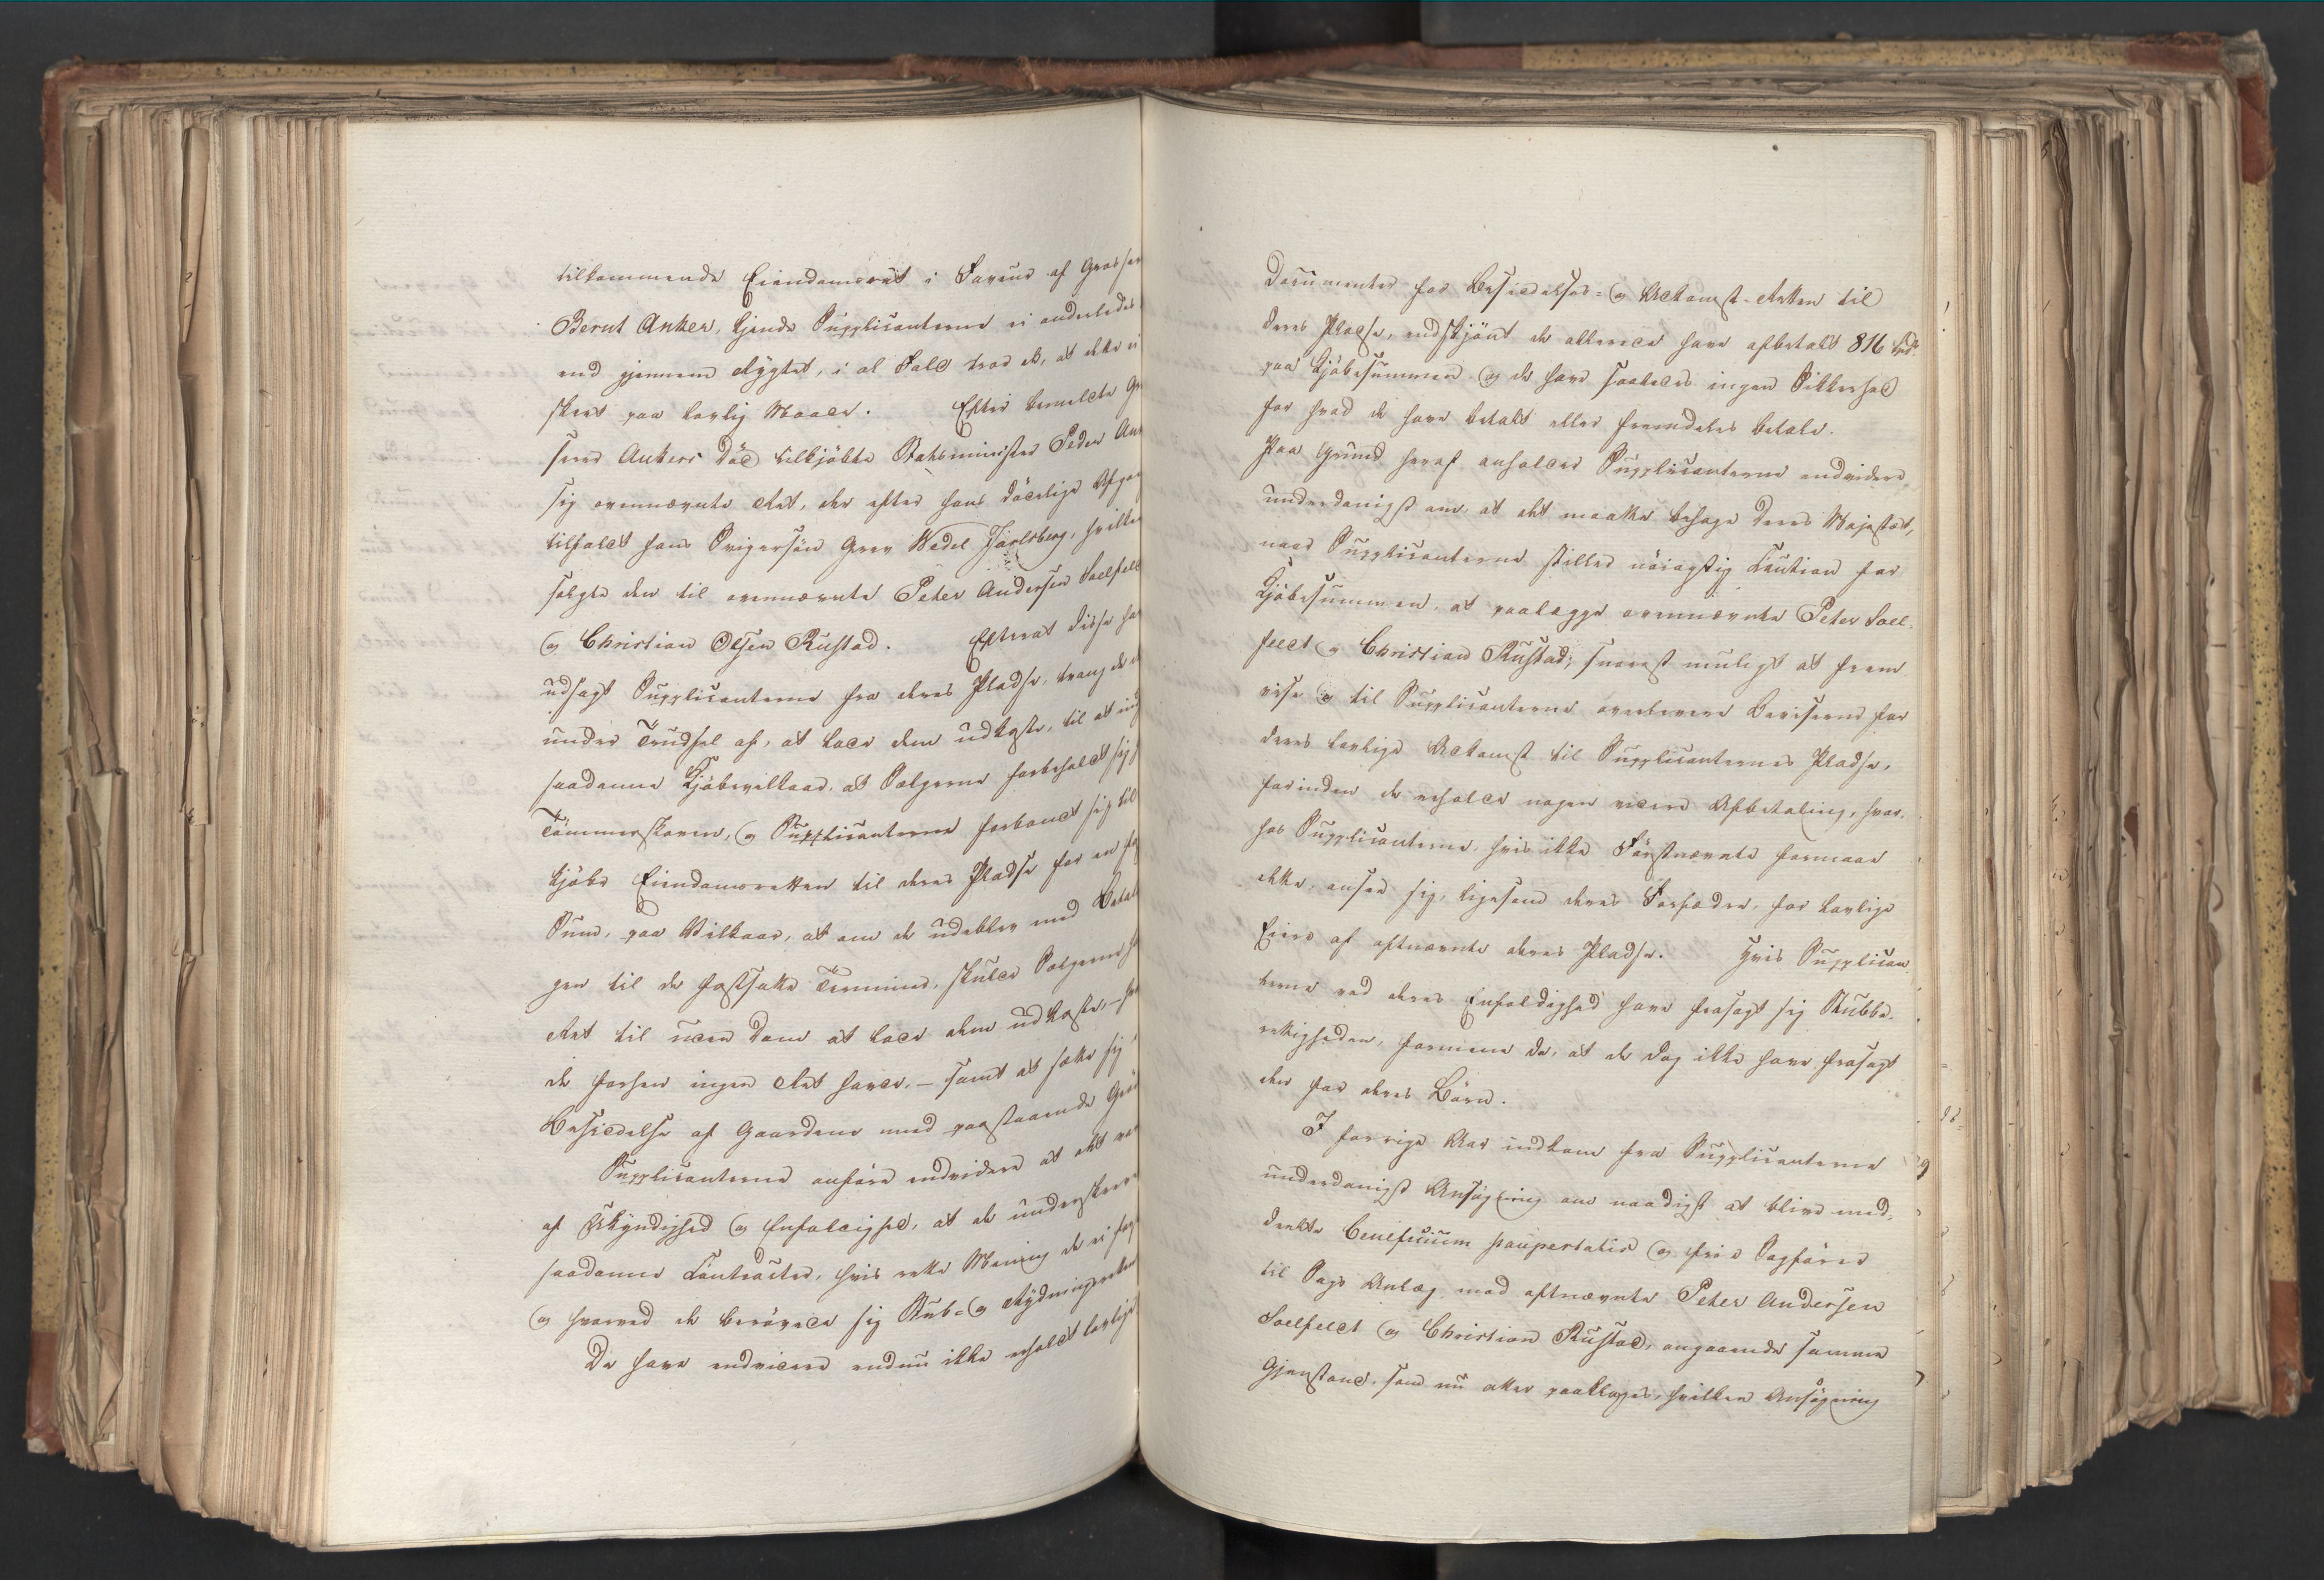 tilkommende Eiendomsret i Faveur af Grosser
Bernt Anker, kjende Supplicanterne ei anderledes
end gjennem Rygtet, i al Fald troe de, at dette ei
skeet paa lovlig Maade. Efter bemeldte Gr
serer Ankers Död tilkjöbte Statsminister Peder An
sig ovennævnte Ret, der efter hans dödelige Afgan
tilfaldt hans Svigersön Grev Wedel Jarlsberg, hvilken
solgte den til ovennævnte Peter Andersen Soelfeldt
og Christian Olsen Rustad. Efterat disse ha
udsagt Supplicanterne fra deres Pladse, tvang de
under Trudsel af, at lade dem udkaste, til at ind
saadanne Kjöbevilkaar, at Sælgerne forbeholdt sig
Tömmerskoven, og Supplicanterne forbandt sig til
kjöbe Eiendomsretten til deres Pladse for en
Sum, paa Vilkaar, at om de udeblev med Betal
gen til de fastsatte Terminer, skulde Sælgerne
Ret til uden Dom at lade dem udkaste,
de forhen ingen Ret havde, – samt at sætte sig
Besiddelse af Gaardene med paastaaende Grö
Supplicanterne anföre endvidere at det var
af Ukyndighed og Enfoldighed, at de underskreve
saadanne Contracter, hvis rette Mening de ei
og hvorved de berövede sig Stub- og Rydningsretten
De have endvidere endnu ikke erholdt lovlige
Documenter for Besiddelses- og Adkomst-Retten til
deres Pladse, endskjönt de allerede have afbetalt 816 Spd.
paa Kjöbesummen og de have saaledes ingen Sikkerhed
for hvad de have betalt eller fremdeles betale.
Paa Grund heraf anholder Supplicanterne endvidere
underdanigst om, at det maatte behage Deres Majestæt,
naar Supplicanterne stiller nöiagtig Caution for
Kjöbesummen, at paalægge ovennævnte Peter Soel-
feldt og Christian Rustad, snarest muligt at frem
vise og til Supplicanterne overlevere Beviserne for
deres lovlige Adkomst til Supplicanternes Pladse,
forinden de erholde nogen videre Afbetaling, hvor-
hos Supplicanterne, hvis ikke Förstnævnte formaae
dette, ansee sig, ligesom deres Forfædre, for lovlige
Eiere af oftnævnte deres Pladse. Hvis Supplican
terne ved deres Enfoldighed have frasagt sig Stubbe-
rettigheden, formene de, at de dog ikke have frasagt
den for deres Börn.
I forrige Aar indkom fra Supplicanterne
underdanigst Ansögning om naadigst at blive med-
deelte beneficium paupertatis og frie Sagförer
til Sags Anlæg mod oftnævnte Peter Andersen
Soelfeldt og Christian Rustad, angaaende samme
Gjenstand, som nu atter paaklages, hvilken Ansögning